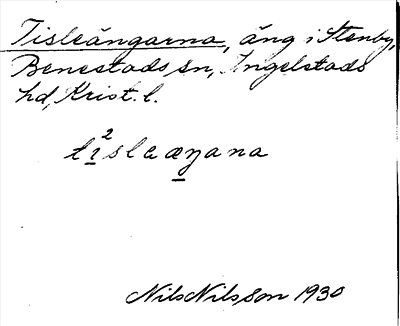 Tisleängarna, äng i Stenby,
Benestads sn, Ingelstads
hd, Krist. l.
tı²slaæŋana
Nils Nilsson 1930